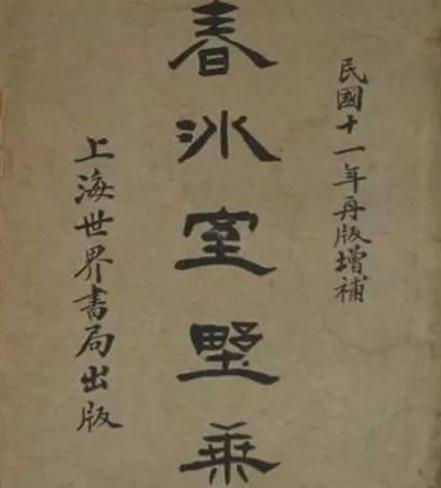 民國十一年再版增補
春冰室野乘
上海世界書局出版